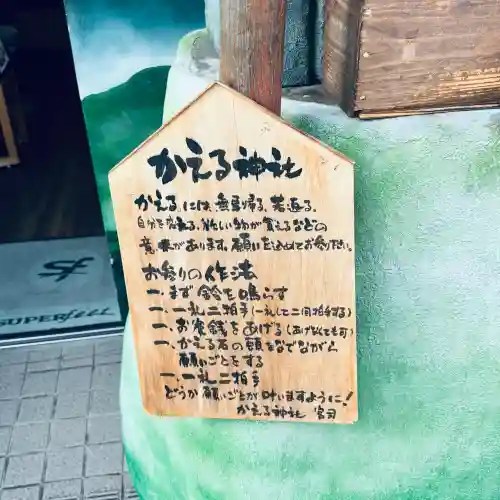 かえる神社
かえる には、無事帰る、若返る、
自分を変える、欲しい物が買えるなどの
意味があります。願いを込めてお参り下さい。
お参りの作法
一.まず鈴を鳴らす
一.一礼二拍手(一礼して二回拍手する)
一.お賽銭をあげる(あげなくても可)
一.かえる石の頭をなでながら
願いごとをする
一.一礼二拍手
どうか願いごとが叶いますように!
かえる神社 宮司
SF
SUPERfeet